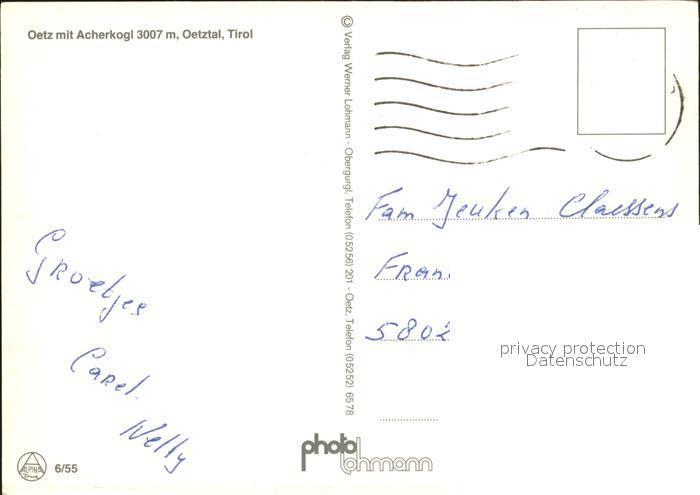 Oetz mit Acherkogl 3007 m, Oetztal, Tirol
Groetjes
Carel.
Nelly
ALPINA
6/55
© Verlag Werner Lohmann - Obergurgl, Telefon (05256) 201 - Oetz, Telefon (05252) 6578
photo
lohmann
Fam Jeuken Claessens
Fran.
5802
privacy protection
Datenschutz